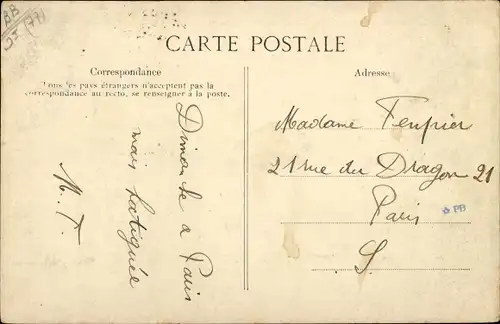 BB
DI (77)
CARTE POSTALE
Correspondance
Tous les pays étrangers n'acceptent pas la
correspondance au recto, se renseigner à la poste.
Adresse
Dimanche a Paris
mais fatiguée
M.T.
Madame
21 rue du Dragon 21
Paris
BB